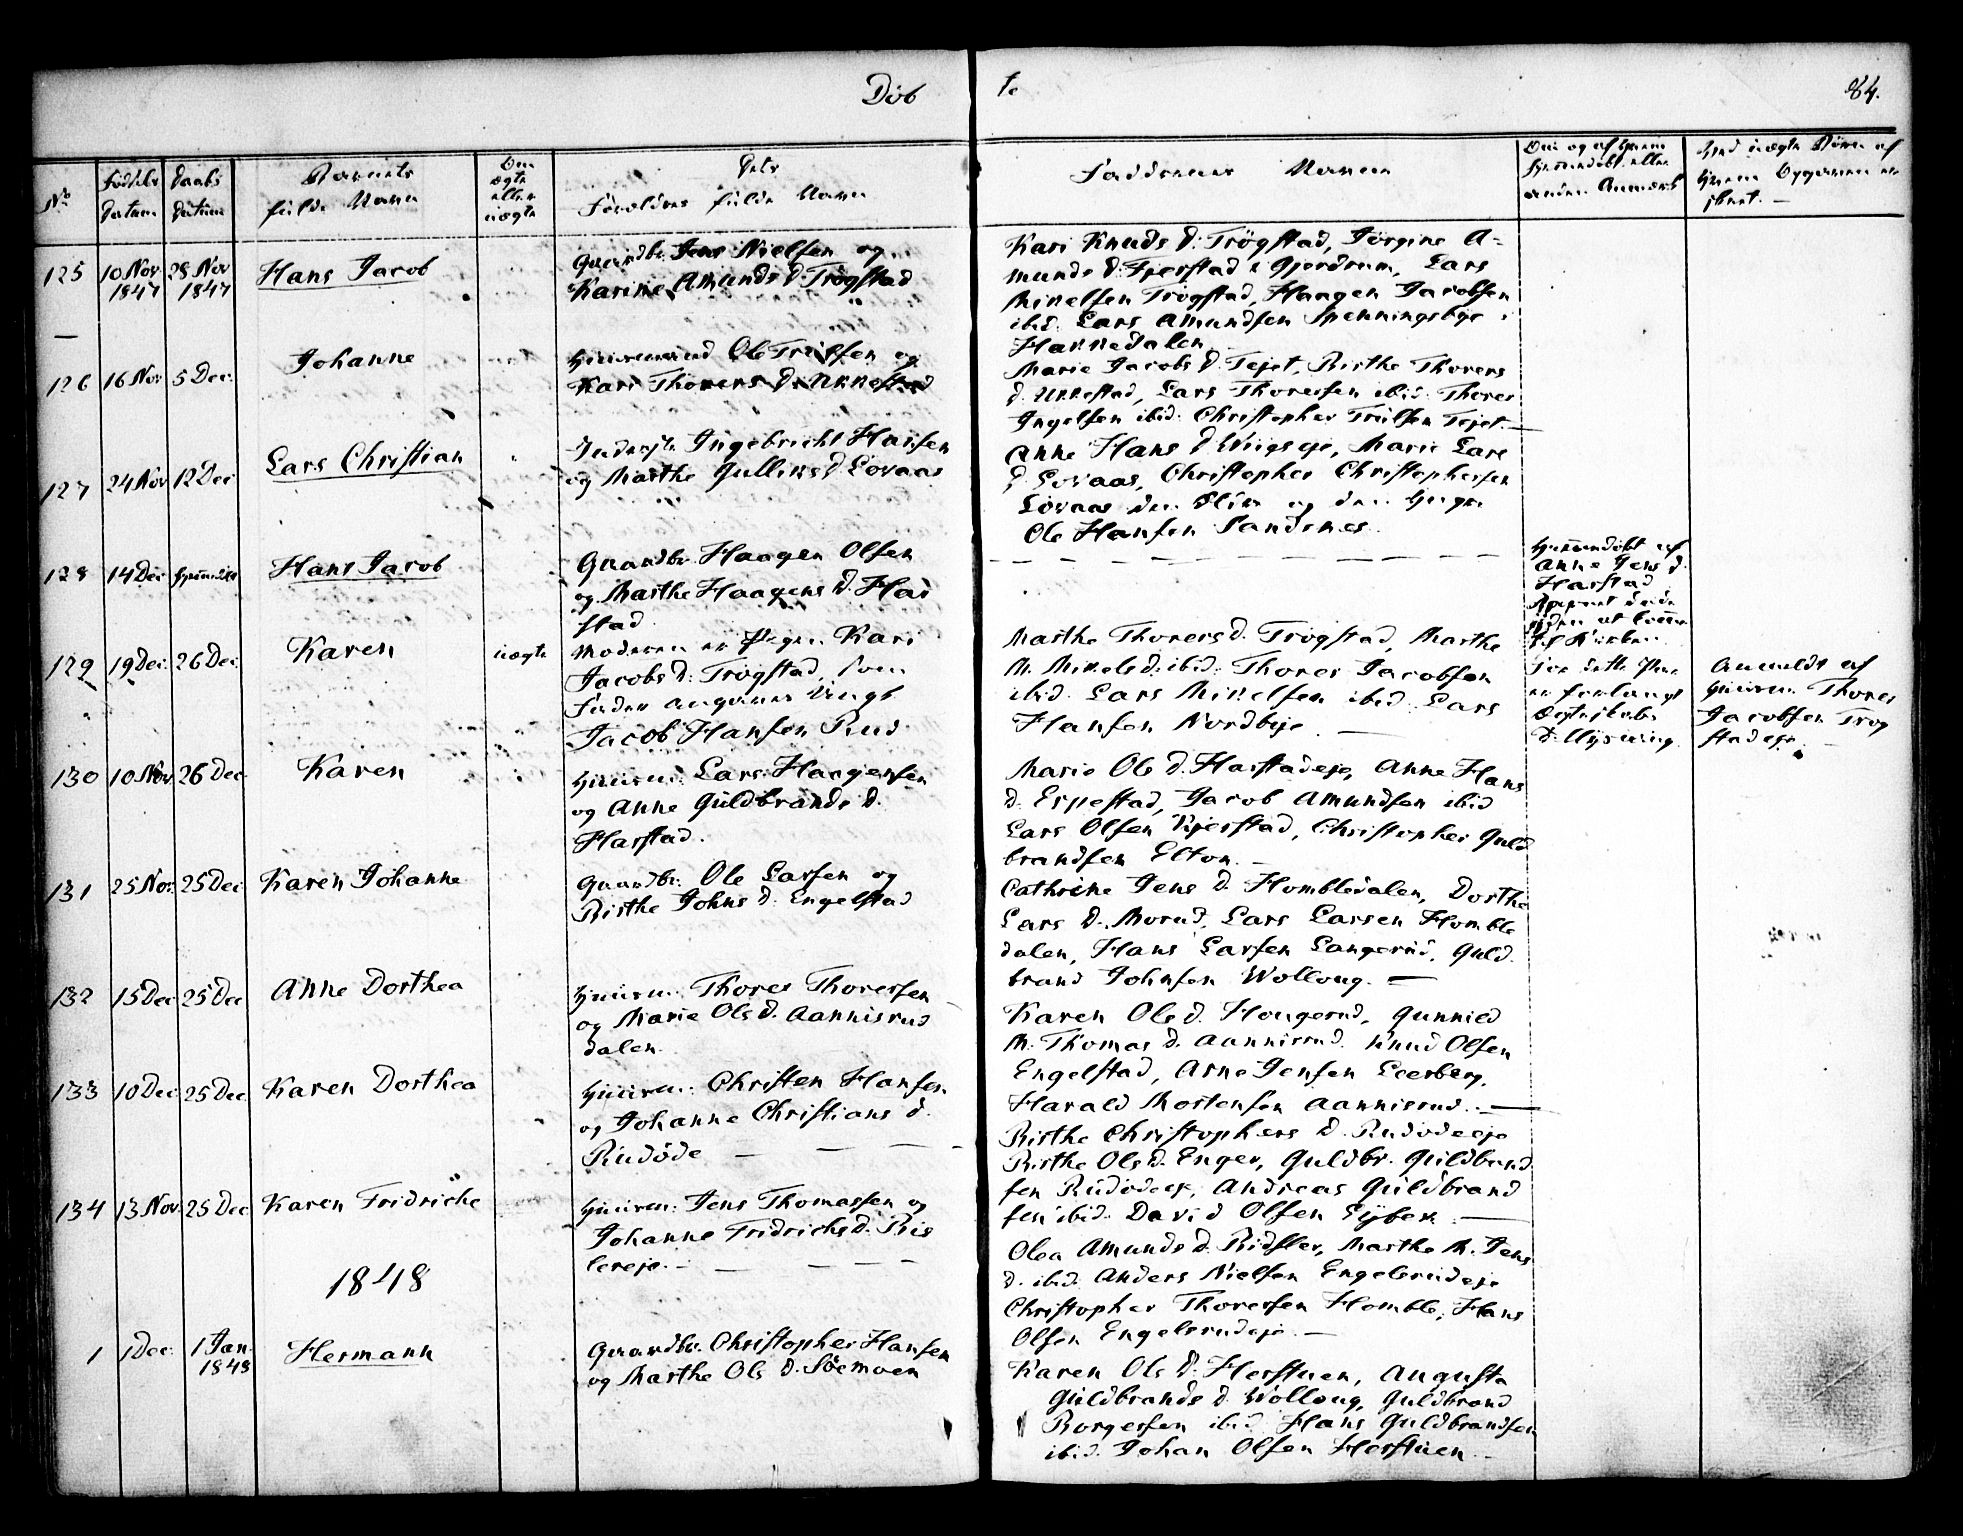 Döb
te
84.
No
Fødsels
Datum
Daabs
Datum
Barnets
fulde Navn
Om
ægte
eller
uægte
Dets
Forældres fulde Navn
Faddernes Navne
Om og af hvem
hjemmedøbt eller
anden Anmærk
Ved uægte Børn af
hvem Opgaven er
skeet. —
125
10 Nov
1847
28 Nov
1847
Hans Jacob
Gaardbr. Jens Nielsen og
Karine Amunds d. Trögstad
Kari Knuds d. Trögstad, Jörgine A-
munds d. Fjerstad i Gjerdrum, Lars
Mikelsen Trögstad, Haagen Jacobsen
ibid. Lars Amundsen Spenningsbye i
Hakkedalen
126
16 Nov
5 Dec.
Johanne
Huusmand Ole Trulsen og
Kari Thorers d. Ukkestad
Marie Jacobs d. Tejet, Birthe Thorers
d. Ukkestad, Lars Thoresen ibid. Thorer
Ingelsen ibid. Christopher Trulsen Tejet.
127
24 Nov
12 Dec
Lars Christian
Inderst. Ingebricht Hansen
og Marthe Gulliks d. Lövaas
Anne Hans d. Viigseje, Marie Lars
d. Lövaas, Christopher Christophersen
Lövaas den Eldre og den Yngre
Ole Hansen Sandenes.
128
14 Dec
hjemmedöbt
Hans Jacob
Gaardbr. Haagen Olsen
og Marthe Haagens d. Har
stad
Hjemmedöbt af
Anne Jens d.
Harstad
Barnet döde
uden at komme
til Kirken
129
19 Dec.
26 Dec.
Karen
uægte
Moderen er Pigen Kari
Jacobs d. Trögstad, som
Fader angives Ungk
Jacob Hansen Rud
Marthe Thorers d. Trögstad, Marthe
M. Mikels d. ibid. Thorer Jacobsen
ibid. Lars Mikelsen ibid. Lars
Hansen Nordbye
For dette Par
er forlangt
Ægteskabs
Anmeldt af
Huusm. Thorer
Jacobsen Trög
stadeje.
130
10 Nov.
26 Dec.
Karen
Huusm. Lars Haagensen
og Anne Guldbrands d.
Harstad.
Marie Ols d. Harstadeje, Anne Hans
d. Erpestad, Jacob Amundsen ibid
Lars Olsen Kjerstad, Christopher Guld
brandsen Elton. —
131
25 Nov.
25 Dec
Karen Johanne
Gaardbr. Ole Larsen og
Birthe Johns d. Engelstad
Cathrine Jens d. Hombledalen, Dorthe
Lars d. Morud, Lars Larsen Homble
dalen, Hans Larsen Langerud, Guld
brand Johnsen Wolloug. —
132
15 Dec
25 Dec
Anne Dorthea
Huusm. Thorer Thorersen
og Marie Ols d. Aannisrud
dalen.
Karen Ols d. Hougerud, Gunnild
M. Thomas d. Aannisrud. Knud Olsen
Engelstad, Arne Jensen Leerberg,
Harald Mortensen Aannisrud. —
133
10 Dec
25 Dec
Karen Dorthea
Huusm. Christen Hansen
og Johanne Christians d.
Rudöde —
Birthe Christophers d. Rudödeeje
Birthe Ols d. Enger, Guldbr. Guldbrand
sen Rudödeeje, Andreas Guldbrand
sen ibid. David Olsen —
134
13 Nov.
25 Dec
Karen Fridriche
Huusm. Jens Thomassen og
Johanne Fridrichs d. Ris
lereje. —
Olea Amunds d. Ridsler, Marthe M. Jens
d. ibid. Anders Nielsen Engelsrudeje
Christopher Thoresen Homble, Hans
Olsen Engelsrudeje. —
1848
1
1 Dec.
1 Jan.
1848
Hermann
Gaardbr. Christopher Hansen
og Marthe Ols d. Söemoen
Karen Ols d. Herstuen, Augusta
Guldbrands d. Wolloug, Guldbrand
Borgersen ibid. Hans Guldbrandsen
ibid. Johan Olsen Herstuen. —